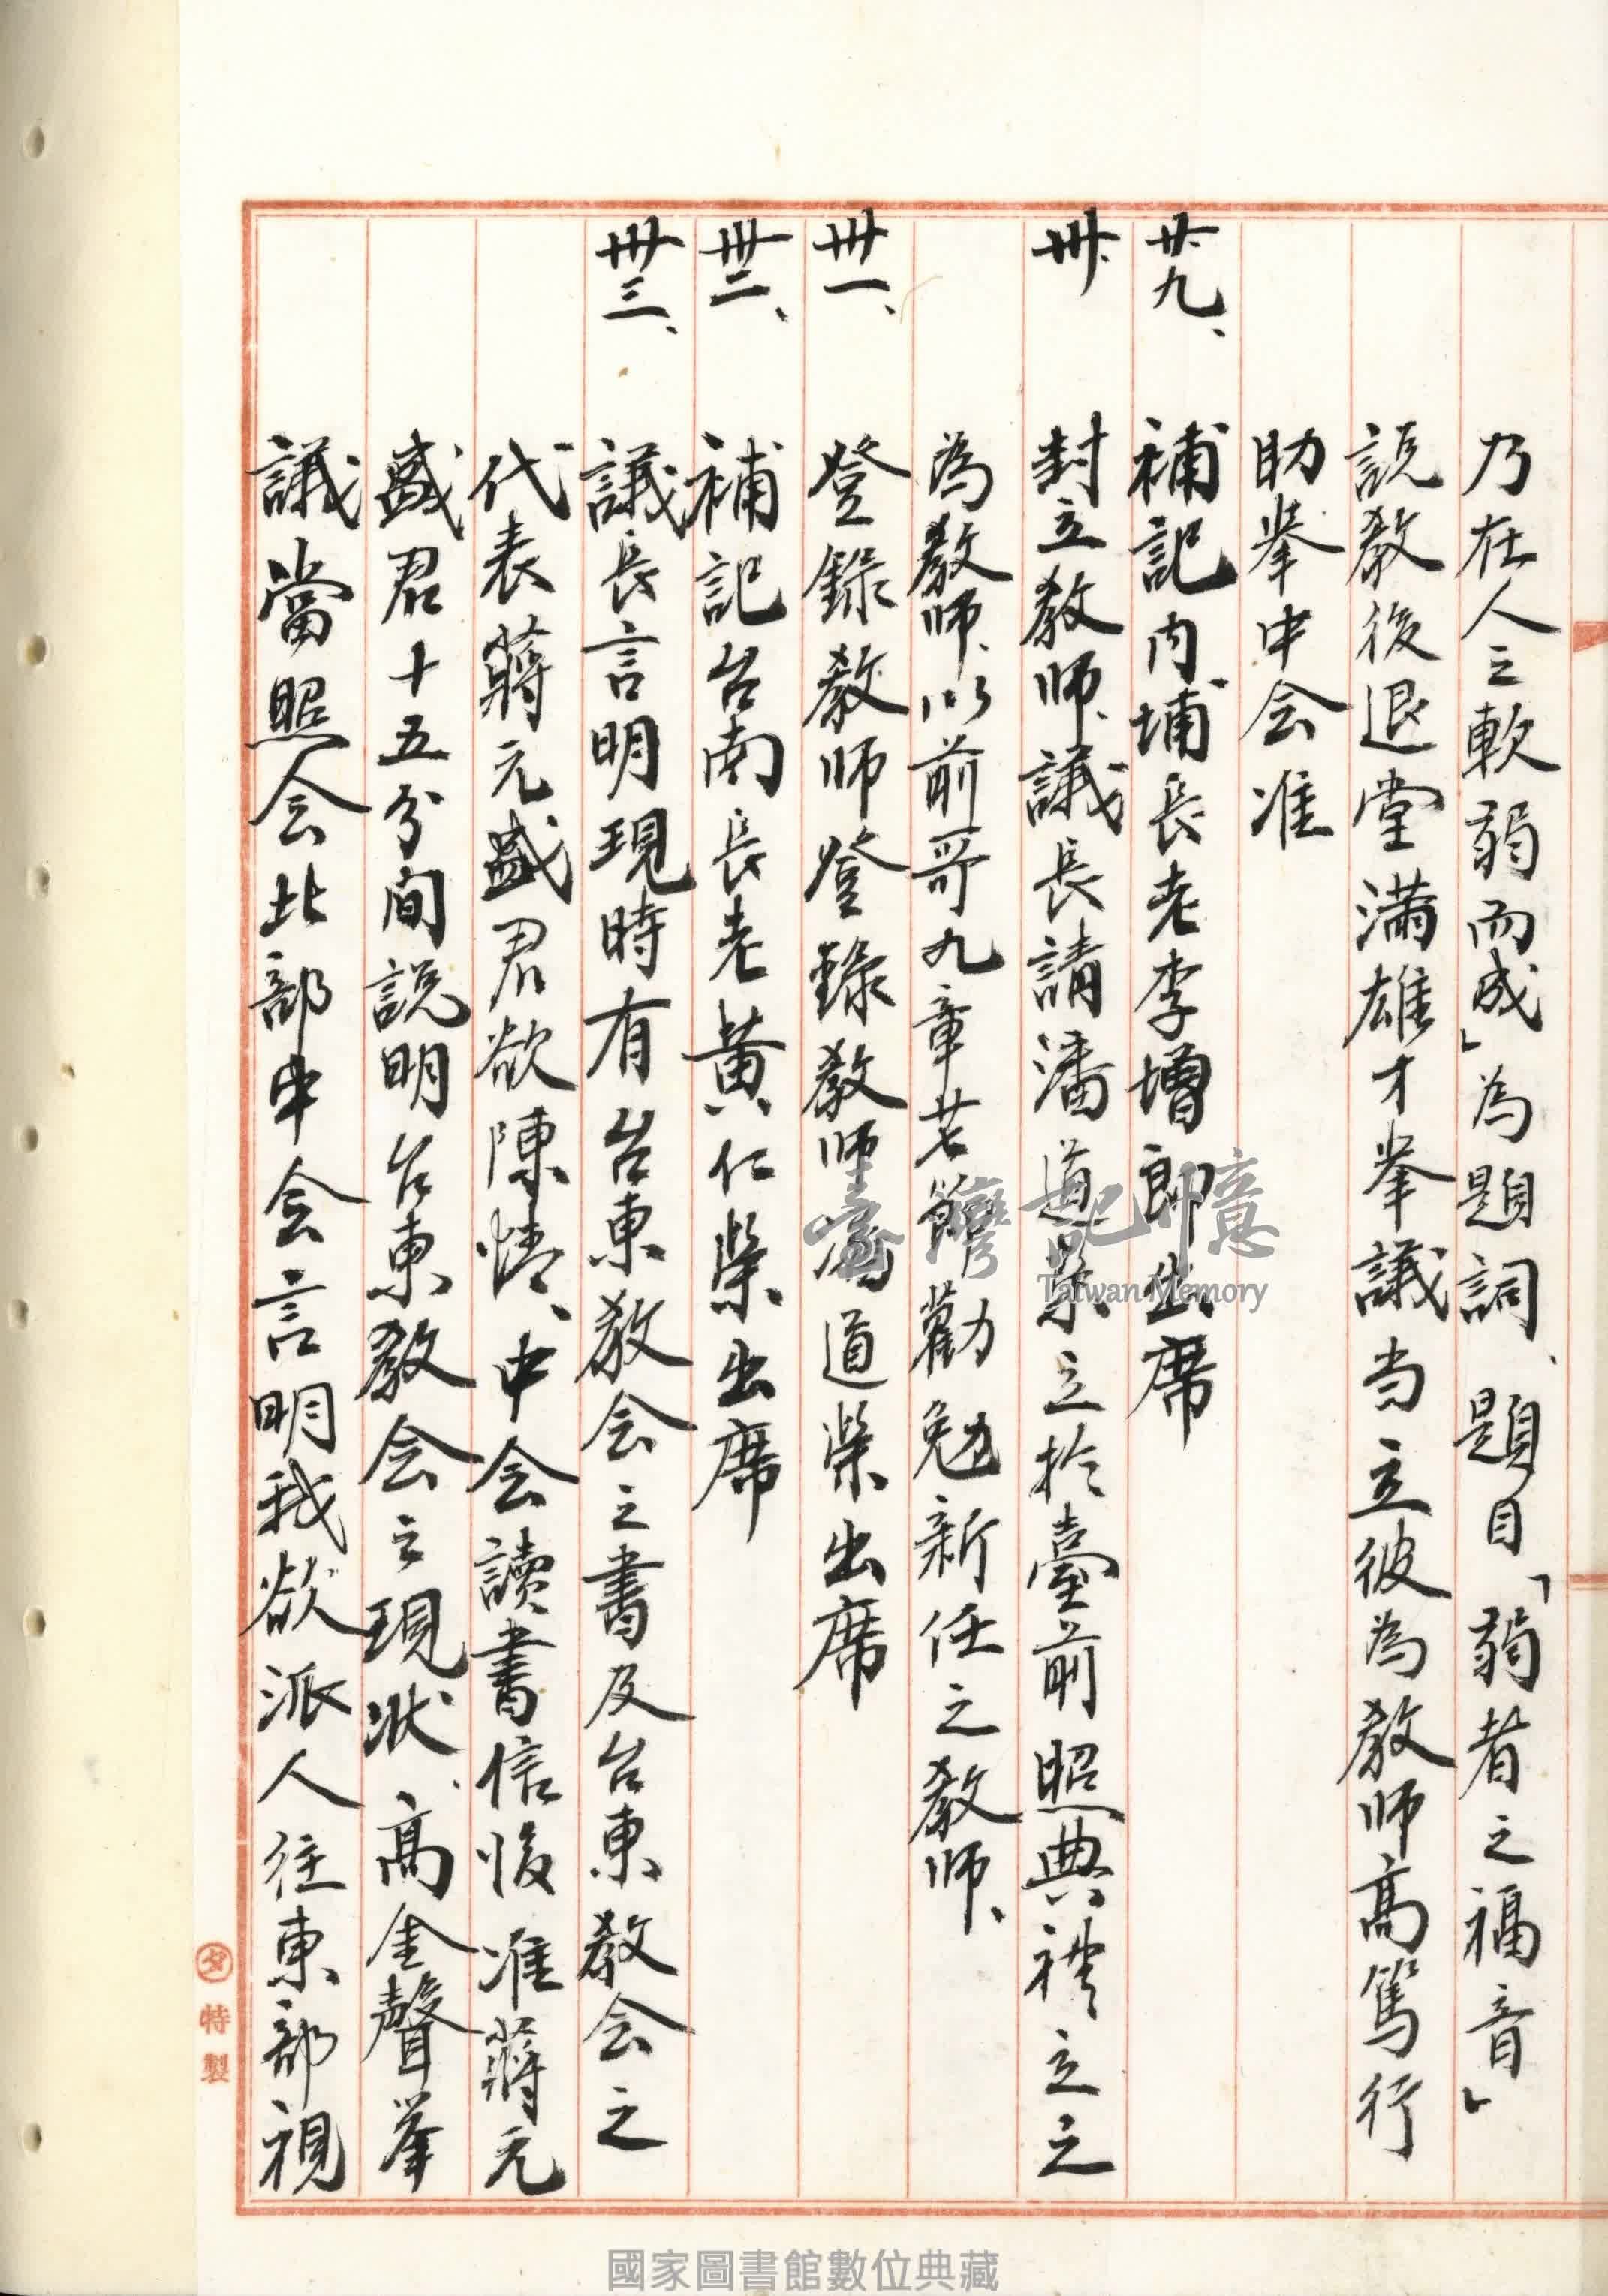 乃在人之軟弱而成」為題詞、題目「弱者之福音」
説教後退堂滿雄才挙議当立彼為教師高篤行
助挙中会准
廿九、補記內埔長老李增郎出席
卅、封立教師、議長請潘道榮立於臺前照典禮立之
為教師、以前哥九章若簡勸勉新任之教師、
卅一、登錄教師登錄教師潘道榮出席
卅二、補記台南長老黃仁榮出席
卅三、議長言明現時有台東教会之書及台東教会之
代表蔣元盛君欲陳情、中会讀書信後准蔣元
盛君十五分間説明台東教会之現狀、高金聲挙
議當照会北部中会言明我欲派人往東部視
タ特製
臺灣記憶
Taiwan Memory
國家圖書館數位典藏